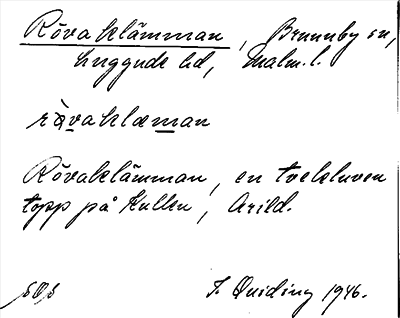 Rövaklämman, Brunnby sn,
Luggude hd, Malm. l.
rövaklæman
Rövaklämman, en tvekluven
topp på Kullen, Arild.
SOS F. Quiding 1946.